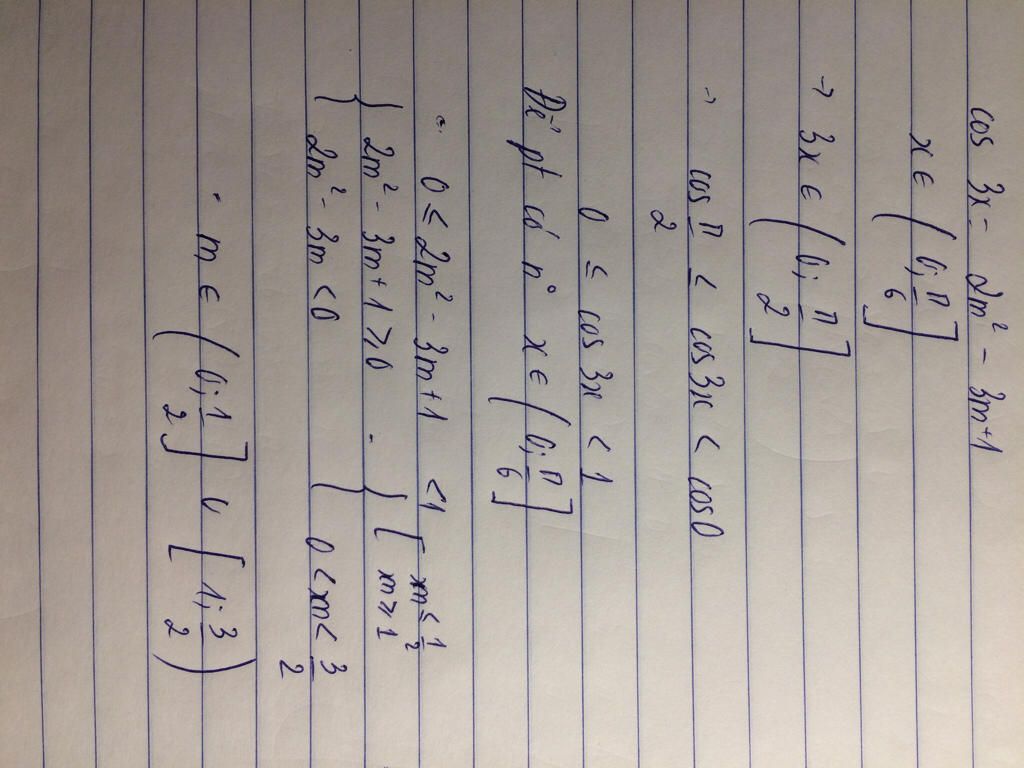 cos 3x = 2m² - 3m+1
x ∈ (0; π/6]
→ 3x ∈ (0; π/2]
→ cos π/2 ≤ cos3x < cos0
0 ≤ cos 3x < 1
Để pt có n° x ∈ (0; π/6]
0 ≤ 2m² - 3m+1 < 1
{ 2m² - 3m+1 ≥ 0 - { [ m ≤ 1/2 m ≥ 1
{ 2m² - 3m < 0 { 0 < m < 3/2
m ∈ (0; 1/2] ∪ [1; 3/2)